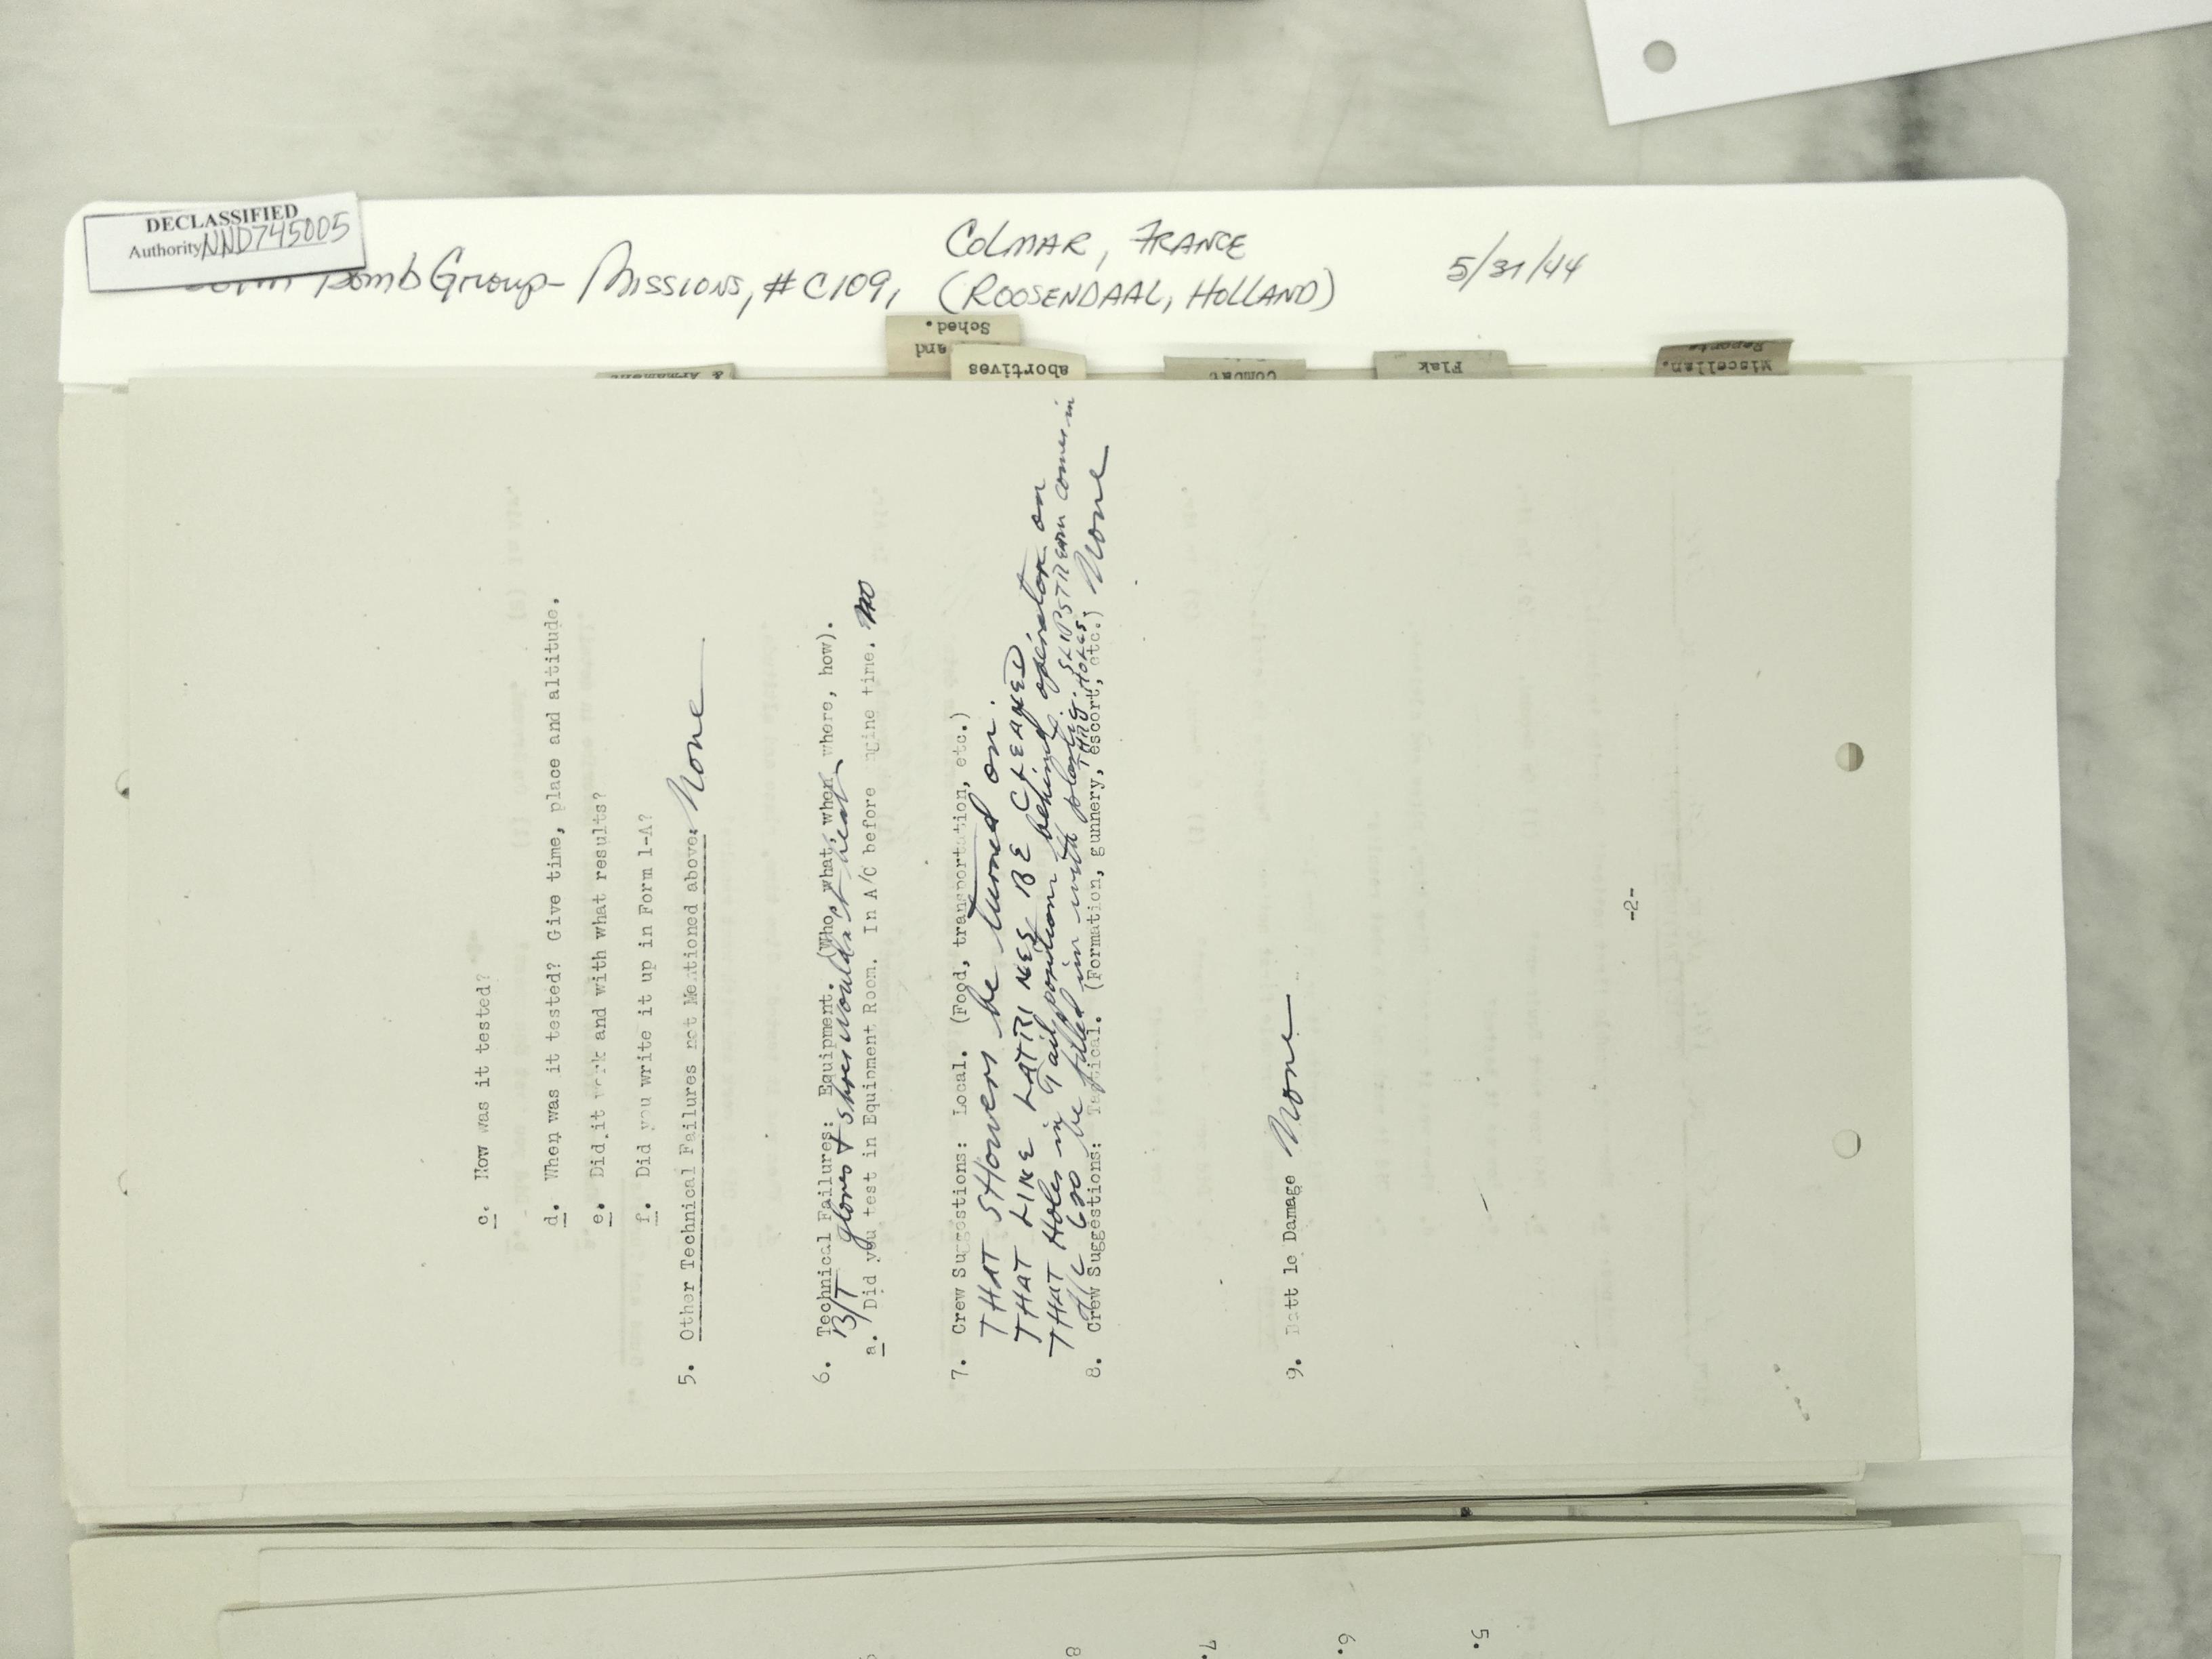 DECLASSIFIED
Authority NND745005
Bomb Group- Missions, #C109, COLMAR, FRANCE
(ROOSENDAAL, HOLLAND)
5/31/44
Sched.
and
abortives
& Armament
Combat
Flak
Miscellan.
Reports
c. How was it tested?
d. When was it tested? Give time, place and altitude.
e. Did it work and with what results?
f. Did you write it up in Form 1-A?
5. Other Technical Failures not Mentioned above: None
6. Technical Failures: Equipment. (Who, what, when, where, how).
B/T gloves & shoes wouldn't heat
a. Did you test in Equipment Room. In A/C before engine time. no
7. Crew Suggestions: Local. (Food, transportation, etc.)
THAT SHOWERS be turned on.
THAT LINE LATRINES BE CLEANED
THAT Holes in Tail position behind operator on
A/C 600 be filled in with SLIPSTREAM comes in
THRU HOLES.
8. Crew Suggestions: Tactical. (Formation, gunnery, escort, etc.) None
9. Battle Damage None
-2-
8
7.
6.
5.